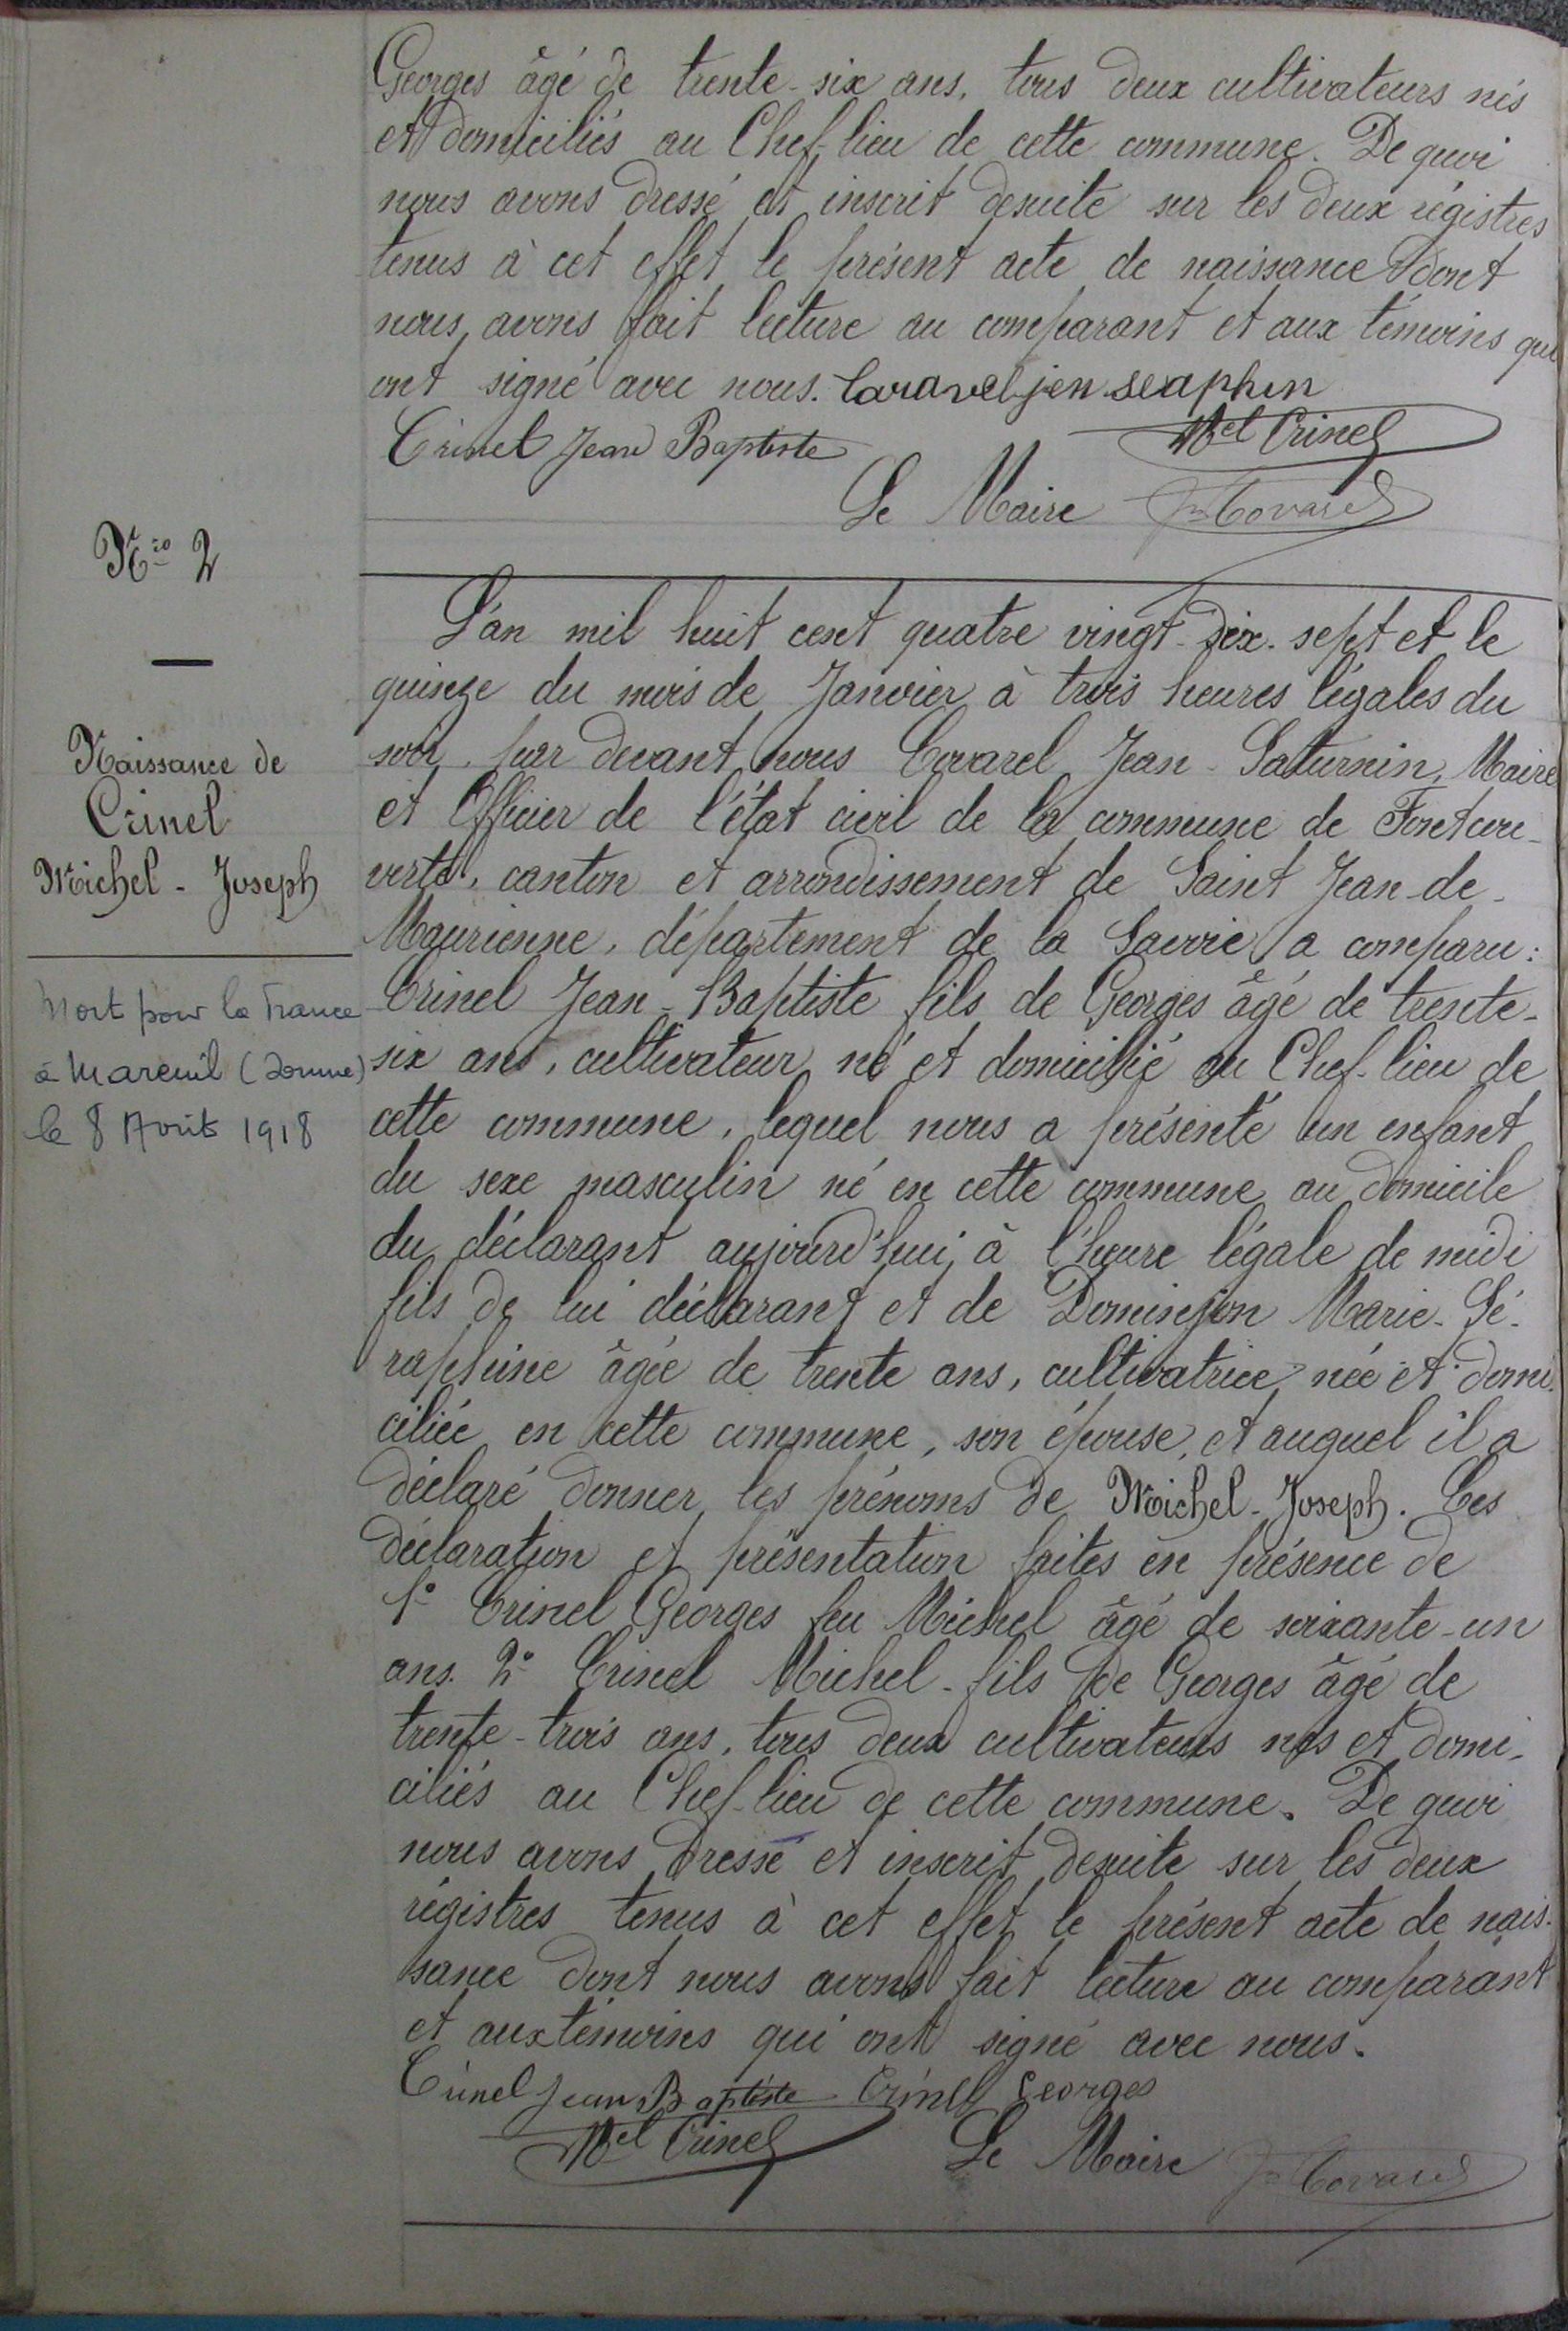 Georges âgé de trente-six ans, tous deux cultivateurs nés
et domiciliés au Chef-lieu de cette commune. De quoi
nous avons dressé et inscrit desuite sur les deux régistres
tenus à cet effet le présent acte de naissance dont
nous avons fait lecture au comparant et aux témoins qui
ont signé avec nous. Caravel jen seaphin
Crinel Jean Baptiste Mel Crinel
Le Maire Jn Covarel
Nro 2
Naissance de
Crinel
Michel-Joseph
Mort pour la France
à Mareuil (Somme)
le 8 Avril 1918
L'an mil huit cent quatre vingt-dix-sept et le
quinze du mois de Janvier à trois heures légales du
soir, par devant nous Covarel Jean-Saturnin, Maire
et Officier de l'état civil de la commune de Fontcou-
verte, canton et arrondissement de Saint Jean-de-
Maurienne, département de la Savoie, a comparu:
Crinel Jean-Baptiste fils de Georges âgé de trente-
six ans, cultivateur né et domicilié au Chef-lieu de
cette commune, lequel nous a présenté un enfant
du sexe masculin né en cette commune au domicile
du déclarant aujourd'hui à l'heure légale de midi
fils de lui déclarant et de Dominjon Marie-Sé-
raphine âgée de trente ans, cultivatrice née et domi-
ciliée en cette commune, son épouse, et auquel il a
déclaré donner les prénoms de Michel-Joseph. Ces
déclaration et présentation faites en présence de
1° Crinel Georges feu Michel âgé de soixante-un
ans. 2° Crinel Michel-fils de Georges âgé de
trente-trois ans, tous deux cultivateurs nés et domi-
ciliés au Chef-lieu de cette commune. De quoi
nous avons dressé et inscrit desuite sur les deux
régistres tenus à cet effet le présent acte de nais-
sance dont nous avons fait lecture au comparant
et aux témoins qui ont signé avec nous.
Crinel Jean Baptiste Crinel Georges
Mel Crinel Le Maire Jn Covarel